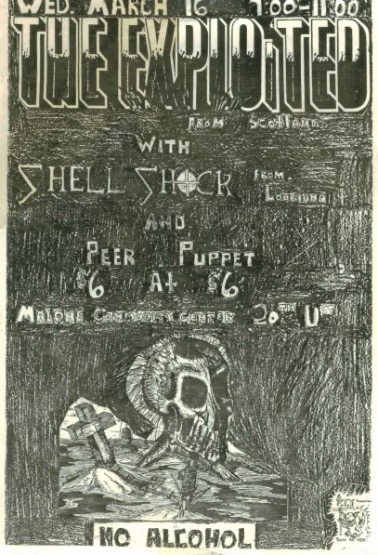 WED. MARCH 16 7:00-11:00
THE EXPLOITED
FROM SCOTLAND
WITH
SHELL SHOCK FROM
LOUISIANA
AND
PEER PUPPET
$6 At $6
MALONE COMMUNITY CENTER 20TH U
NO ALCOHOL